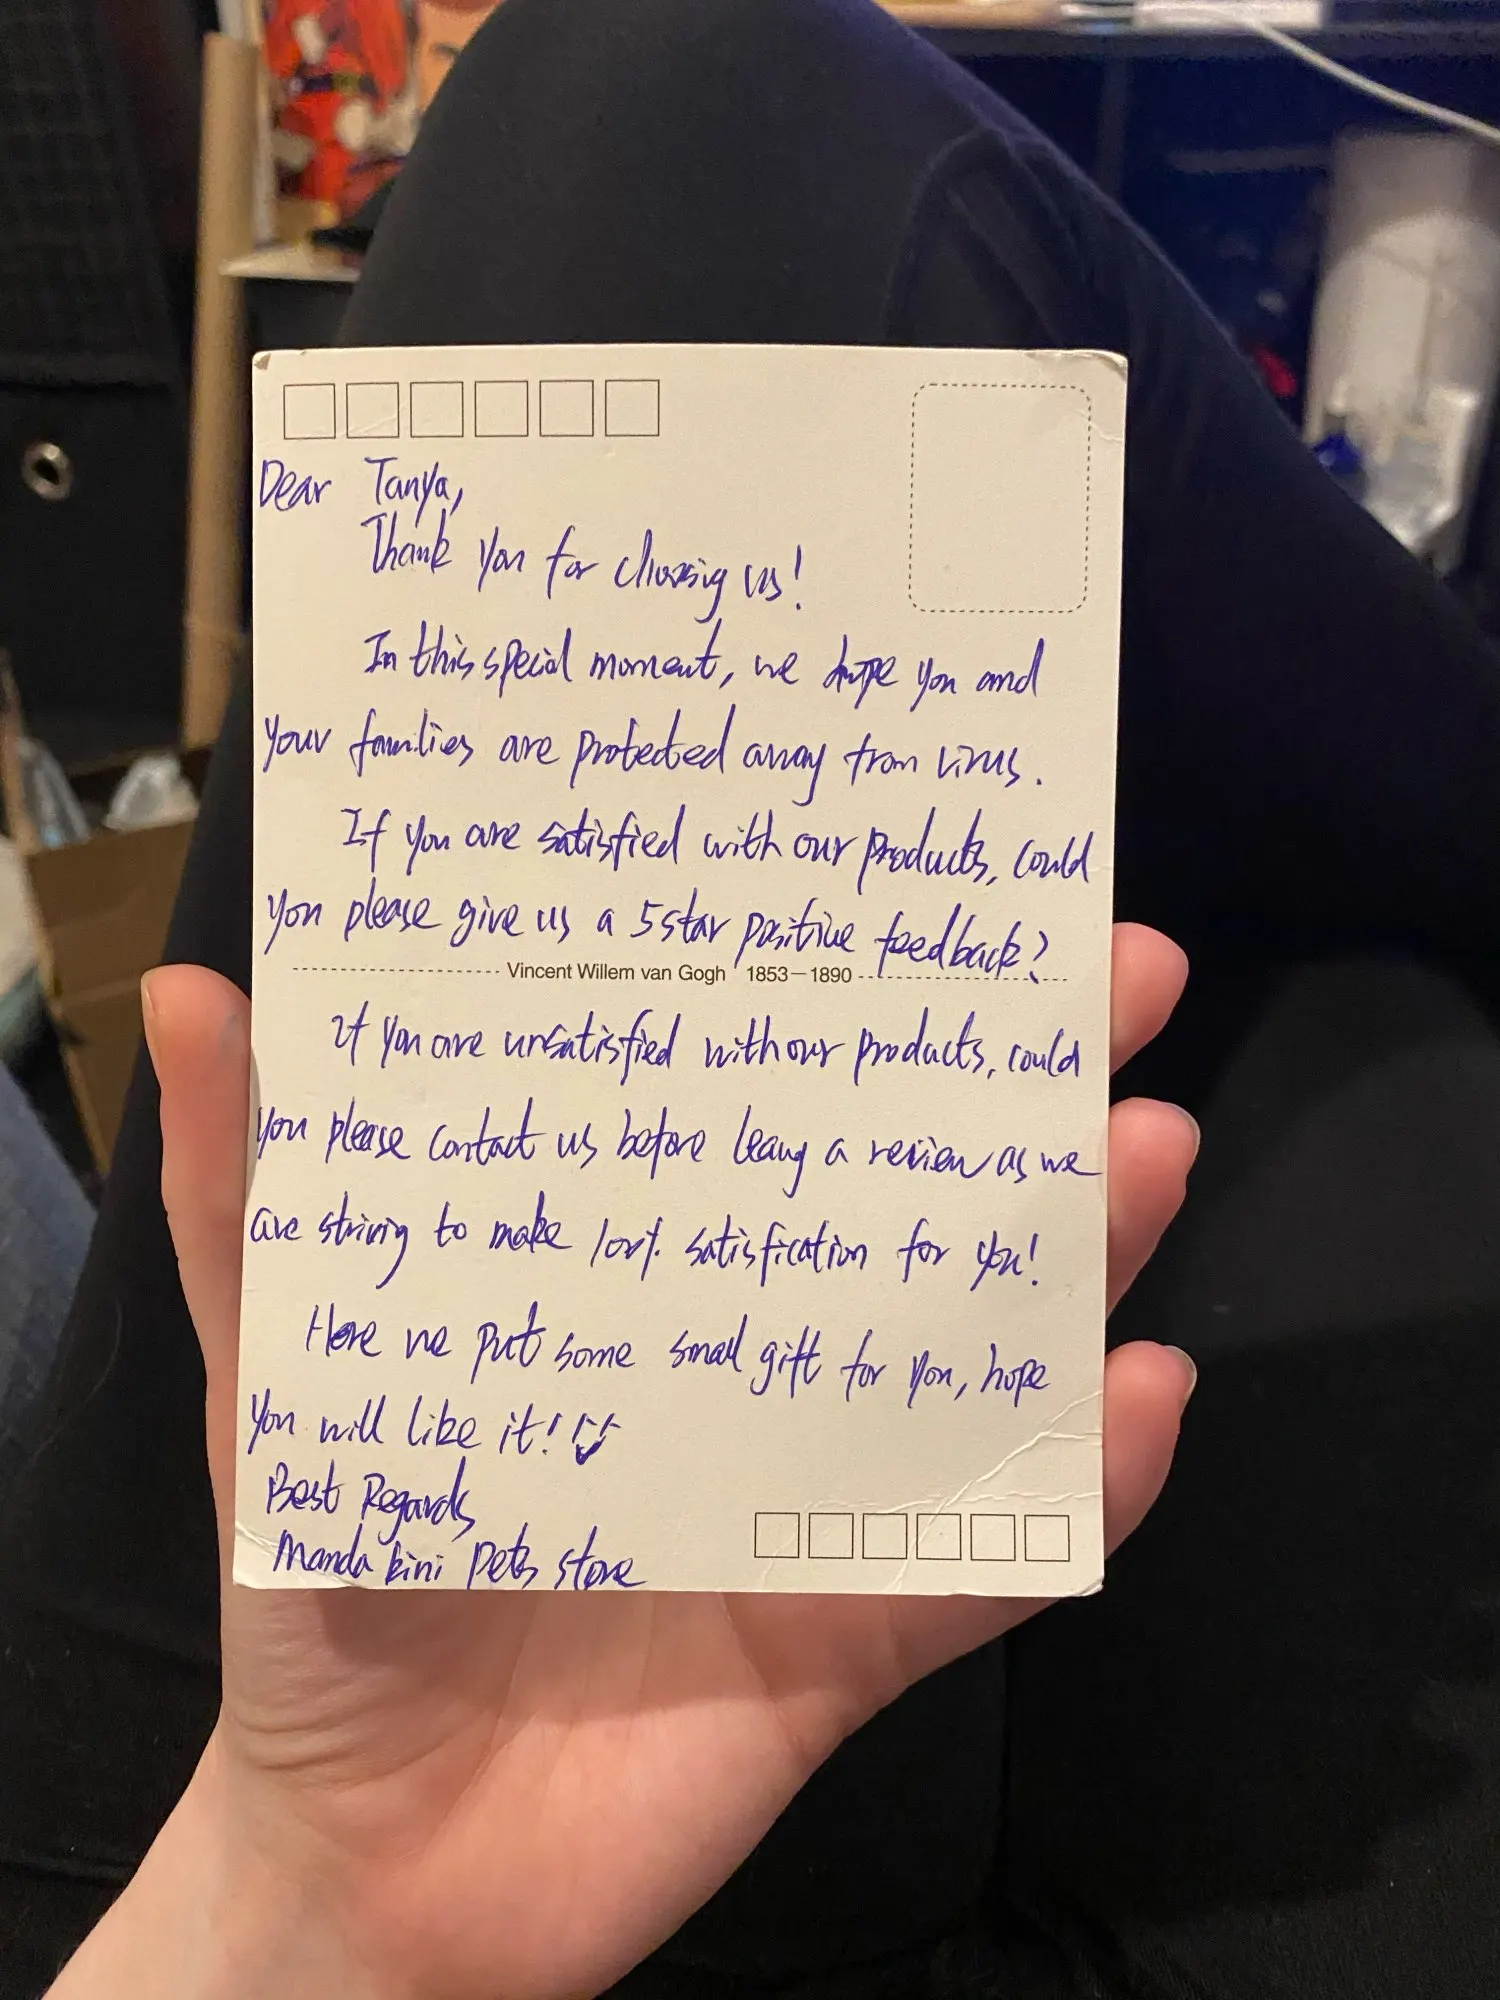 Dear Tanya,
Thank you for choosing us!
In this special moment, we hope you and
your families are protected away from virus.
If you are satisfied with our products, could
you please give us a 5 star positive feedback?
Vincent Willem van Gogh 1853—1890
If you are unsatisfied with our products, could
you please contact us before leavg a review as we
are striving to make 100% satisfication for you!
Here we put some small gift for you, hope
you will like it!
Best Regards
Manda kini pets store